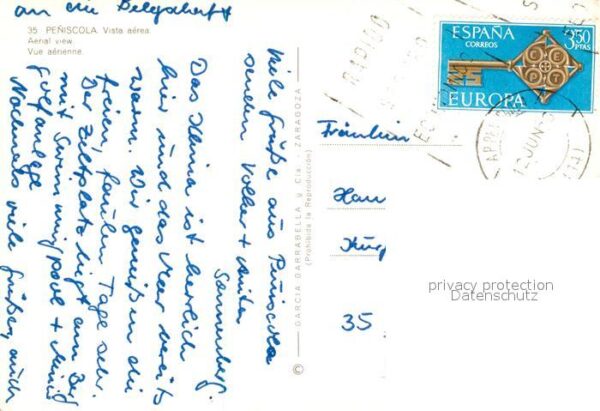 35. PEÑISCOLA. Vista aérea.
Aerial view.
Vue aérienne.
Viele Grüße aus Peñiscola
senden Volker +
Sonnenberg.
Das Klima ist herrlich
hier und das Meer bereits
warm. Wir genießen die
freien, faulen Tage sehr.
Der Zeltplatz liegt am Berg
mit Swimmingpool + Minig
golfanlage
Nochmals viele Grüße, auch
an die Belegschaft
GARCIA GARRABELLA y Cia. - ZARAGOZA
(Prohibida la Reproducción)
©
ESPAÑA
CORREOS
3,50
PTAS
EUROPA
RADIO
JUN
Fräulein
Han
Kur
35
privacy protection
Datenschutz